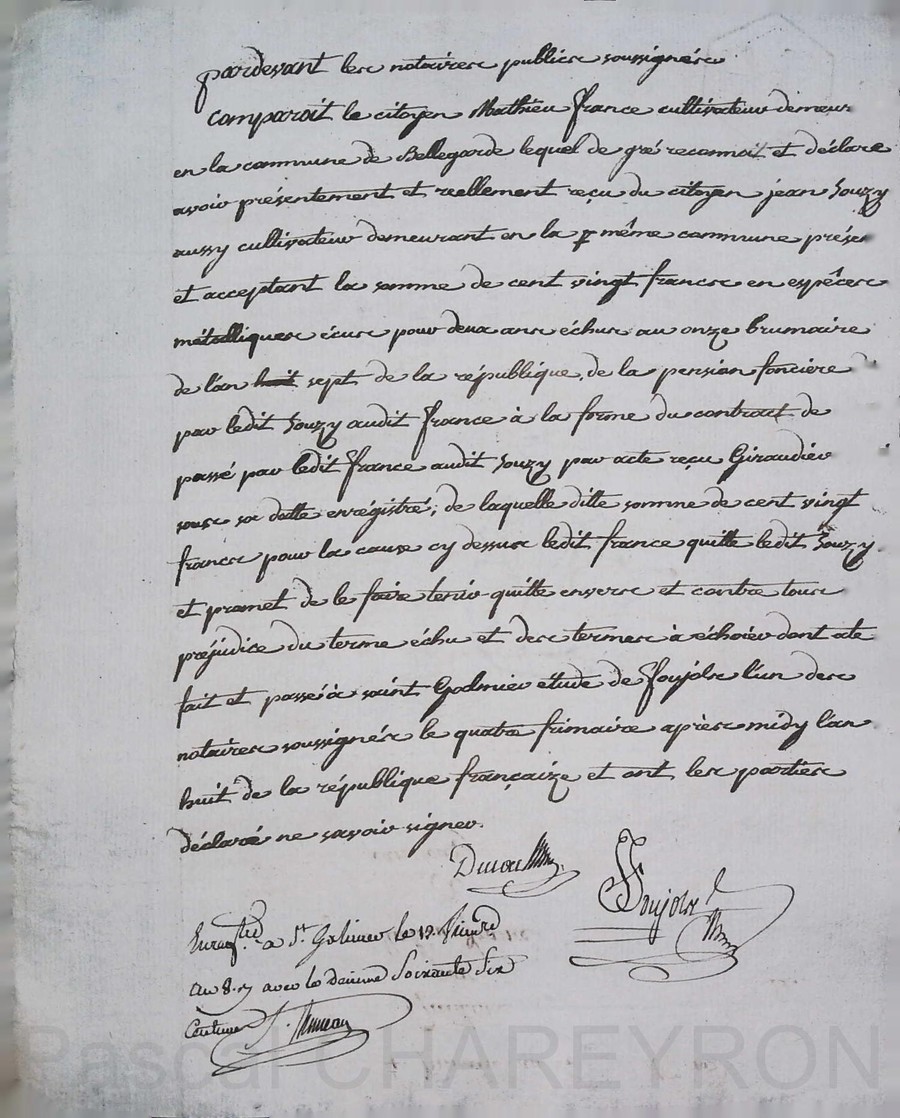 pardevant les notaires publics soussignés
comparoit le citoyen Mathieu france cultivateur demeur
en la commune de Bellegarde lequel de gré reconnoit et déclare
avoir présentement et reellement reçu du citoyen jean Souzy
aussy cultivateur demeurant en la même commune présen
et acceptant la somme de cent vingt francs en espêces
métalliques écus pour deux ans échus au onze brumaire
de l'an huit sept de la république, de la pension foncière
par ledit Souzy audit france à la forme du contrat de
passé par ledit france audit Souzy par acte reçu Giraudier
sous sa datte enrégistré; de laquelle ditte somme de cent vingt
francs pour la cause cy dessus ledit france quitte ledit Souzy
et promet de le faire tenir quitte envers et contre tous
préjudice du terme échu et des termes à échoier dont acte
fait et passé à saint Galmier etude de foujols l'un des
notaires soussignés le quatre frimaire après midy l'an
huit de la république françaize et ont les parties
déclaré ne savoir signer.
Foujols
a St. Galmier le 12. frimre
an 8. avec le dixime Soixante Six
Centimes
Pascal CHAREYRON